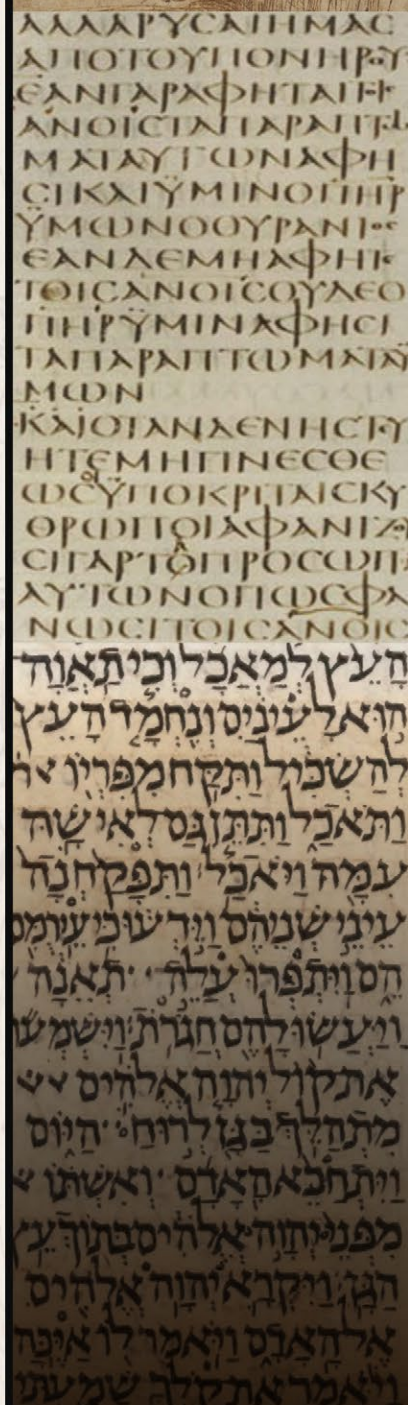 ΑΛΛΑΡΥϹΑΙΗΜΑϹ
ΑΠΟΤΟΥΠΟΝΗΡΟΥ
ΕΑΝΓΑΡΑΦΗΤΑΙ
ΑΝΟΙϹΤΑΠΑΡΑΠΤΩ
ΜΑΤΑΑΥΤΩΝΑΦΗ
ϹΙΚΑΙΫΜΙΝΟΠΗΡ
ΫΜΩΝΟΟΥΡΑΝΙΟϹ
ΕΑΝΔΕΜΗΑΦΗΤΕ
ΤΟΙϹΑΝΟΙϹΟΥΔΕΟ
ΠΗΡΫΜΙΝΑΦΗϹΙ
ΤΑΠΑΡΑΠΤΩΜΑΤΑΫ
ΜΩΝ
ΚΑΙΟΤΑΝΔΕΝΗϹΤΕΥ
ΗΤΕΜΗΓΙΝΕϹΘΕ
ΩϹΫΠΟΚΡΙΤΑΙϹΚΥ
ΘΡΩΠΟΙΑΦΑΝΙΖΟΥ
ϹΙΓΑΡΤΟΠΡΟϹΩΠΟ
ΑΥΤΩΝΟΠΩϹΦΑ
ΝΩϹΙΤΟΙϹΑΝΟΙϹ
הָעֵץ לְמַאֲכָל וְכִי תַאֲוָה
הוּא לָעֵינַיִם וְנֶחְמָד הָעֵץ
לְהַשְׂכִּיל וַתִּקַּח מִפִּרְיוֹ
וַתֹּאכַל וַתִּתֵּן גַּם לְאִישָׁהּ
עִמָּהּ וַיֹּאכַל וַתִּפָּקַחְנָה
עֵינֵי שְׁנֵיהֶם וַיֵּדְעוּ כִּי עֵירֻמִּם
הֵם וַיִּתְפְּרוּ עֲלֵה תְאֵנָה
וַיַּעֲשׂוּ לָהֶם חֲגֹרֹת וַיִּשְׁמְעוּ
אֶת קוֹל יְהוָה אֱלֹהִים
מִתְהַלֵּךְ בַּגָּן לְרוּחַ הַיּוֹם
וַיִּתְחַבֵּא הָאָדָם וְאִשְׁתּוֹ
מִפְּנֵי יְהוָה אֱלֹהִים בְּתוֹךְ עֵץ
הַגָּן וַיִּקְרָא יְהוָה אֱלֹהִים
אֶל הָאָדָם וַיֹּאמֶר לוֹ אַיֶּכָּה
וַיֹּאמֶר אֶת קֹלְךָ שָׁמַעְתִּי